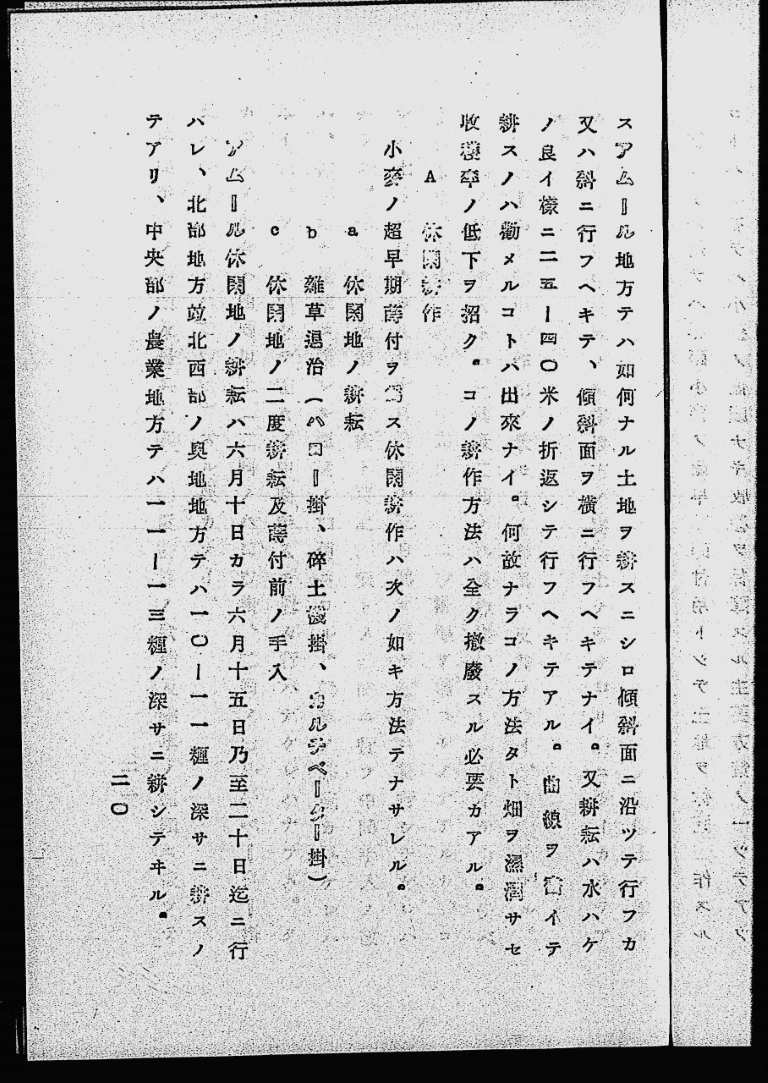 スアムール地方テハ如何ナル土地ヲ耕スニシロ傾斜面ニ沿ツテ行フカ
又ハ斜ニ行フヘキテ、傾斜面ヲ横ニ行フヘキテナイ。又耕耘ハ水ハケ
ノ良イ様ニ二五ー四〇米ノ折返シテ行フヘキテアル。曲線ヲ畫イテ
耕スノハ勸メルコトハ出來ナイ。何故ナラコノ方法タト畑ヲ濕潤サセ
收穫率ノ低下ヲ招ク。コノ耕作方法ハ全ク撤廢スル必要カアル。
A 休閑耕作
小麥ノ超早期蒔付ヲ爲ス休閑耕作ハ次ノ如キ方法テナサレル。
a 休閑地ノ耕耘
b 雜草退治(ハロー掛、碎土機掛、カルチベーター掛)
c 休閑地ノ二度耕耘及蒔付前ノ手入
アムール休閑地ノ耕耘ハ六月十日カラ六月十五日乃至二十日迄ニ行
ハレ、北部地方竝北西部ノ奧地地方テハ一〇ー一一糎ノ深サニ耕スノ
テアリ、中央部ノ農業地方テハ一一ー一三糎ノ深サニ耕シテヰル。
二〇